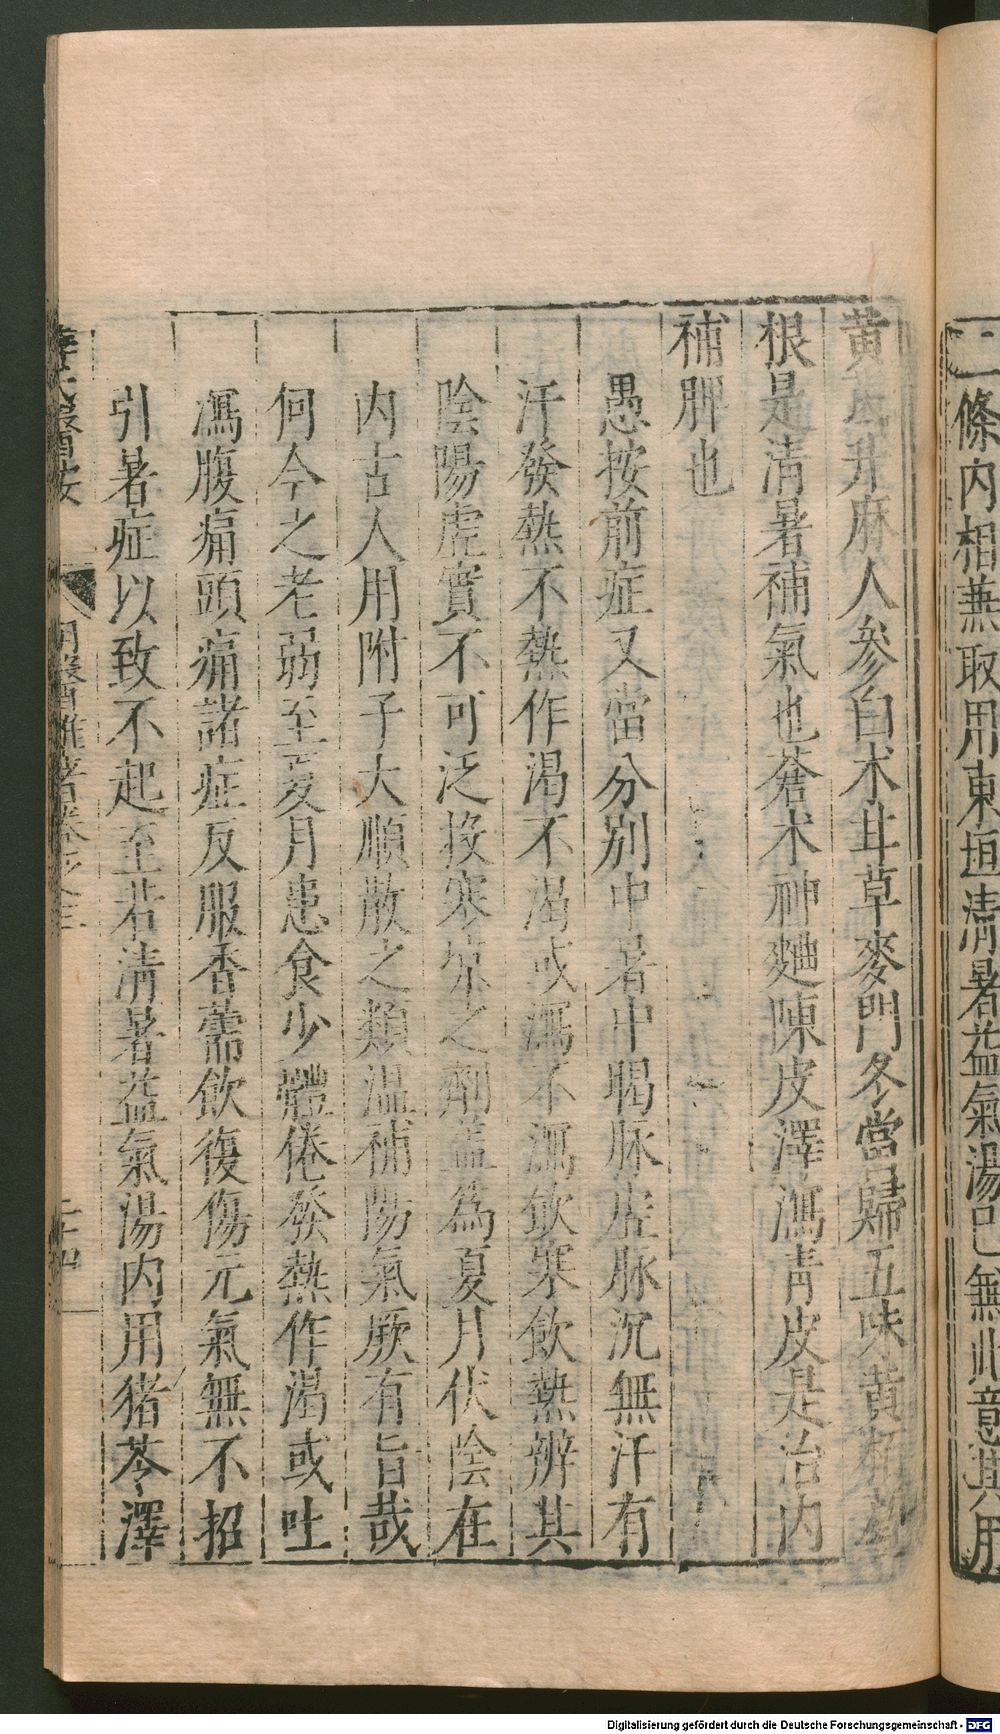 二條內相兼取用東垣淸暑益氣湯已無此意其用
黃芪升麻人參白术甘草麥門冬當歸五味黃栢葛
根是淸暑補氣也蒼术神麯陳皮澤瀉靑皮是治內
補脾也
愚按前症又當分别中暑中暍脉虛脉沉無汗有
汗發熱不熱作渴不渴或瀉不瀉飲寒飲熱辨其
陰陽虛實不可泛投寒凉之劑蓋為夏月伏陰在
內古人用附子大順散之類温補陽氣厥有旨哉
何今之老弱至夏月患食少體倦發熱作渴或吐
瀉腹痛頭痛諸症反服香薷飲復傷元氣無不招
引暑症以致不起至若淸暑益氣湯內用猪苓澤
薛氏醫按 明醫雜著卷之三 二十四
Digitalisierung gefördert durch die Deutsche Forschungsgemeinschaft - DFG